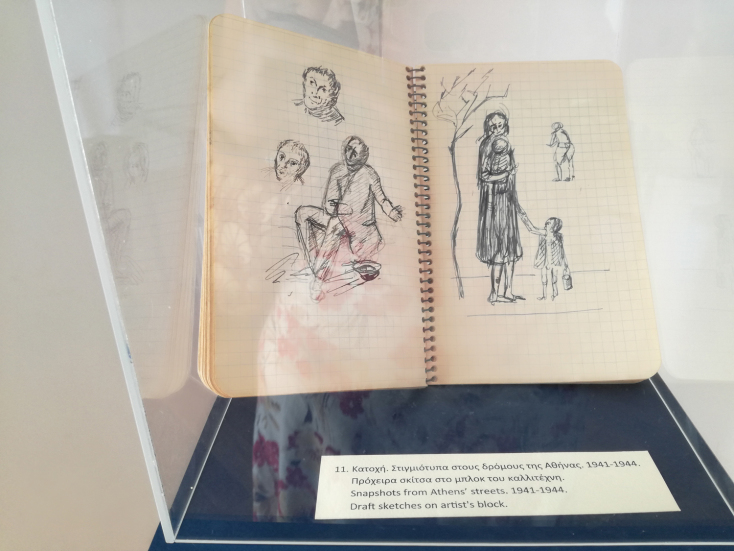 11. Κατοχή. Στιγμιότυπα στους δρόμους της Αθήνας. 1941-1944.
Πρόχειρα σκίτσα στο μπλοκ του καλλιτέχνη.
Snapshots from Athens' streets. 1941-1944.
Draft sketches on artist's block.